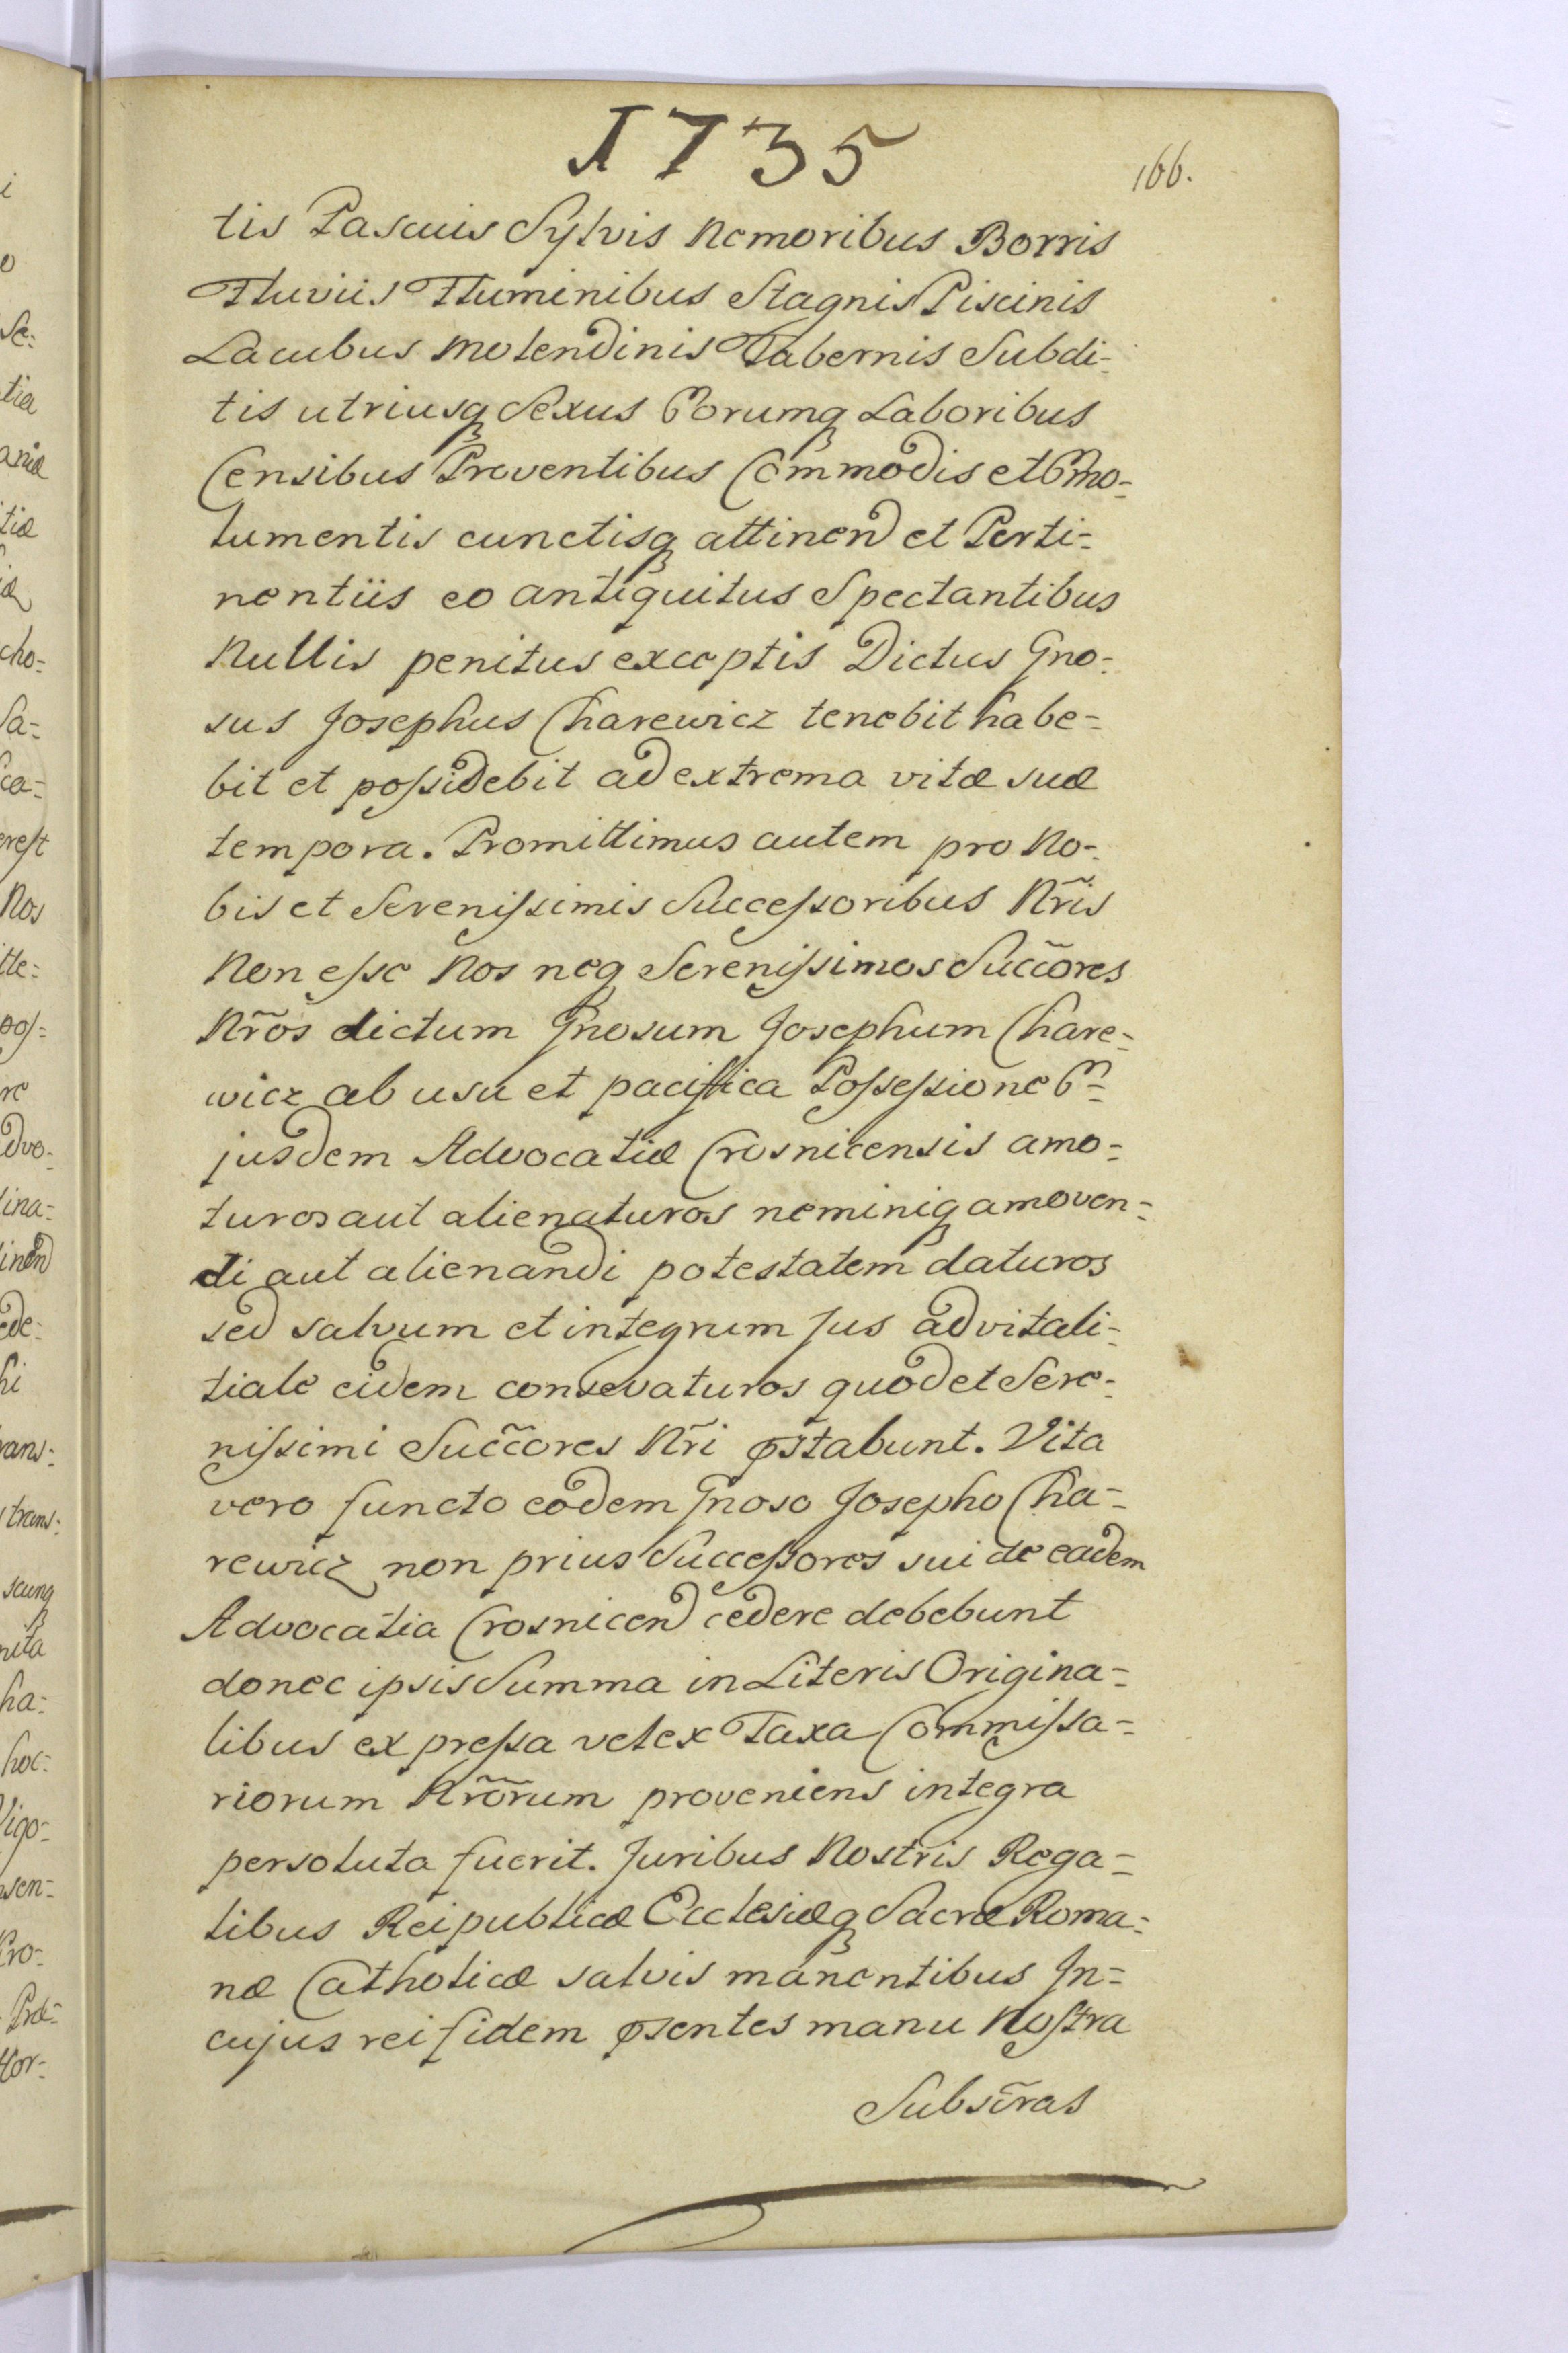 1735
166.
tis Pascuis Sylvis Nemoribus Borris
Fluviis Fluminibus Stagnis Piscinis
Lacubus Molendinis Tabernis Subdi-
tis utriusq Sexus Eorumq Laboribus
Censibus Proventibus Commodis et Emo-
lumentis cunctisq attinen et Perti-
nentiis eo antiquitus Spectantibus
Nullis penitus exceptis Dictus Gno-
sus Josephus Charewicz tenebit habe-
bit et possidebit ad extrema vitæ suæ
tempora. Promittimus autem pro No-
bis et Serenissimis Successoribus Nr̃is
Non esse Nos neq Serenissimos Succ̃ores
Nr̃os dictum Gnosum Josephum Chare-
wicz ab usu et pacifica Possessione E-
jusdem Advocatiæ Crosnicensis amo-
turos aut alienaturos neminiq amoven-
di aut alienandi potestatem daturos
sed salvum et integrum Jus advitali-
tiale eidem consevaturos quod et Sere-
nissimi Succ̃ores Nr̃i pstabunt. Vita
vero functo eodem Gnoso Josepho Cha-
rewicz non prius Successores sui de eadem
Advocatia Crosnicen cedere debebunt
donec ipsis Summa in Literis Origina-
libus expressa vel ex Taxa Commissa-
riorum Nr̃orum proveniens integra
persoluta fuerit. Juribus Nostris Rega-
libus Reipublicæ Ecclesiæq Sacræ Roma-
næ Catholicæ salvis manentibus In-
cujus rei fidem psentes manu Nostra
Subscr̃as